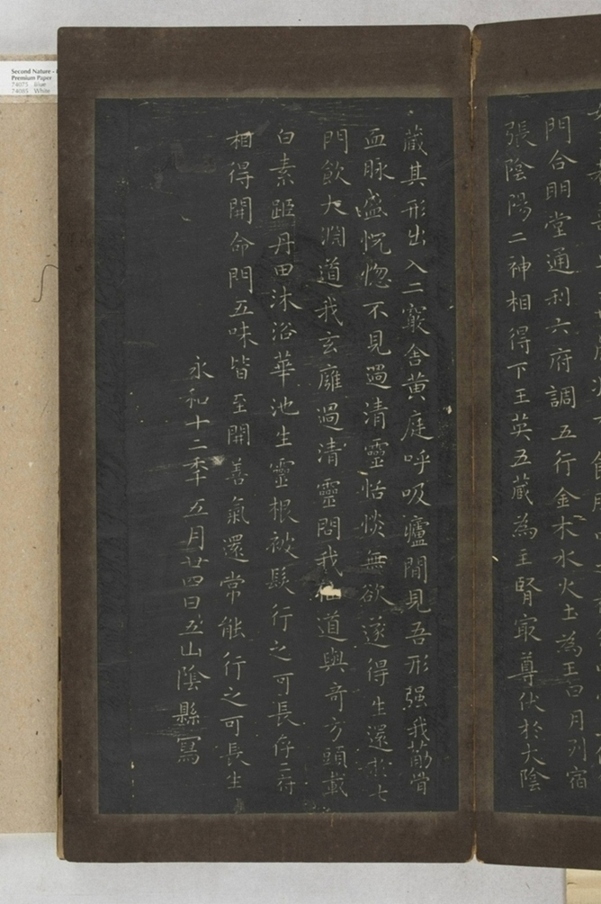 門合明堂通利六府調五行金木水火土為王日月列宿
張陰陽二神相得下王英五藏為主腎寂尊伏於大陰
藏其形出入二竅舍黃庭呼吸廬間見吾形强我筋骨
血脉盛怳惚不見過清靈恬惔無欲遂得生還於七
門飲大淵道我玄廱過清靈問我仙道與奇方頭載
白素距丹田沐浴華池生靈根被髮行之可長存二府
相得開命門五味皆至開善氣還常能行之可長生
永和十二年五月廿四日五山陰縣寫
Second Nature -
Premium Paper
74075 Blue
74085 White